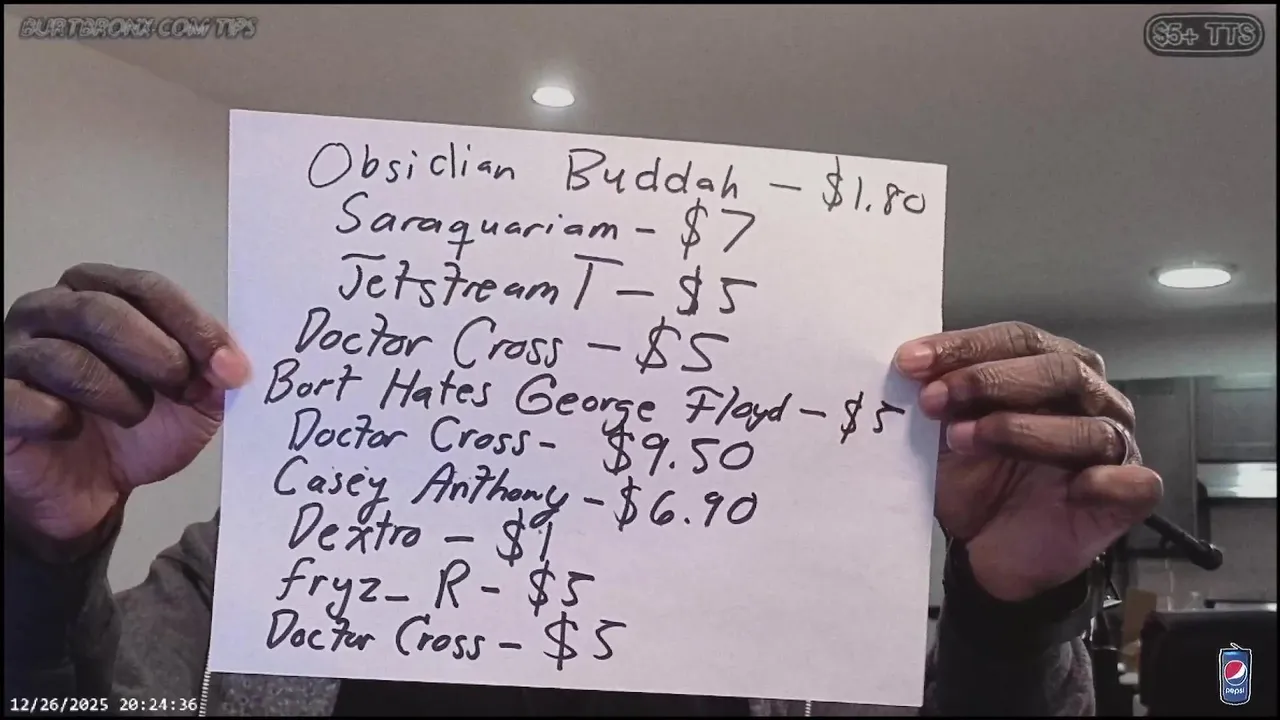 BURTBRONX.COM/TIPS
$5+ TTS
Obsidian Buddah - $1.80
Saraquariam - $7
Jetstream T - $5
Doctor Cross - $5
Bort Hates George Floyd - $5
Doctor Cross - $9.50
Casey Anthony - $6.90
Dextro - $1
fryz_ R - $5
Doctor Cross - $5
12/26/2025 20:24:36
pepsi